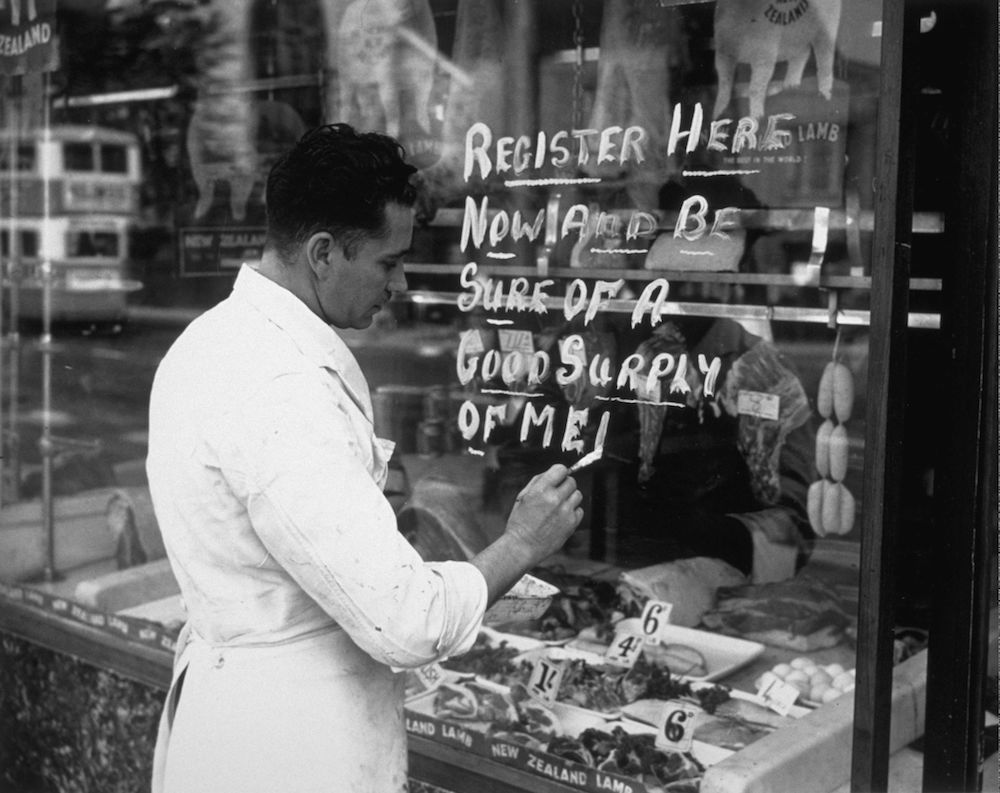 ZEALAND
ZEALAND
REGISTER HERE
NOW AND BE
SURE OF A
GOOD SUPPLY
OF MEA
LAMB
THE BEST IN THE WORLD
NEW ZEALAND
6D
4D
1/-
6D
NEW ZEALAND LAMB
LAND LAMB NEW ZEALAND LAMB